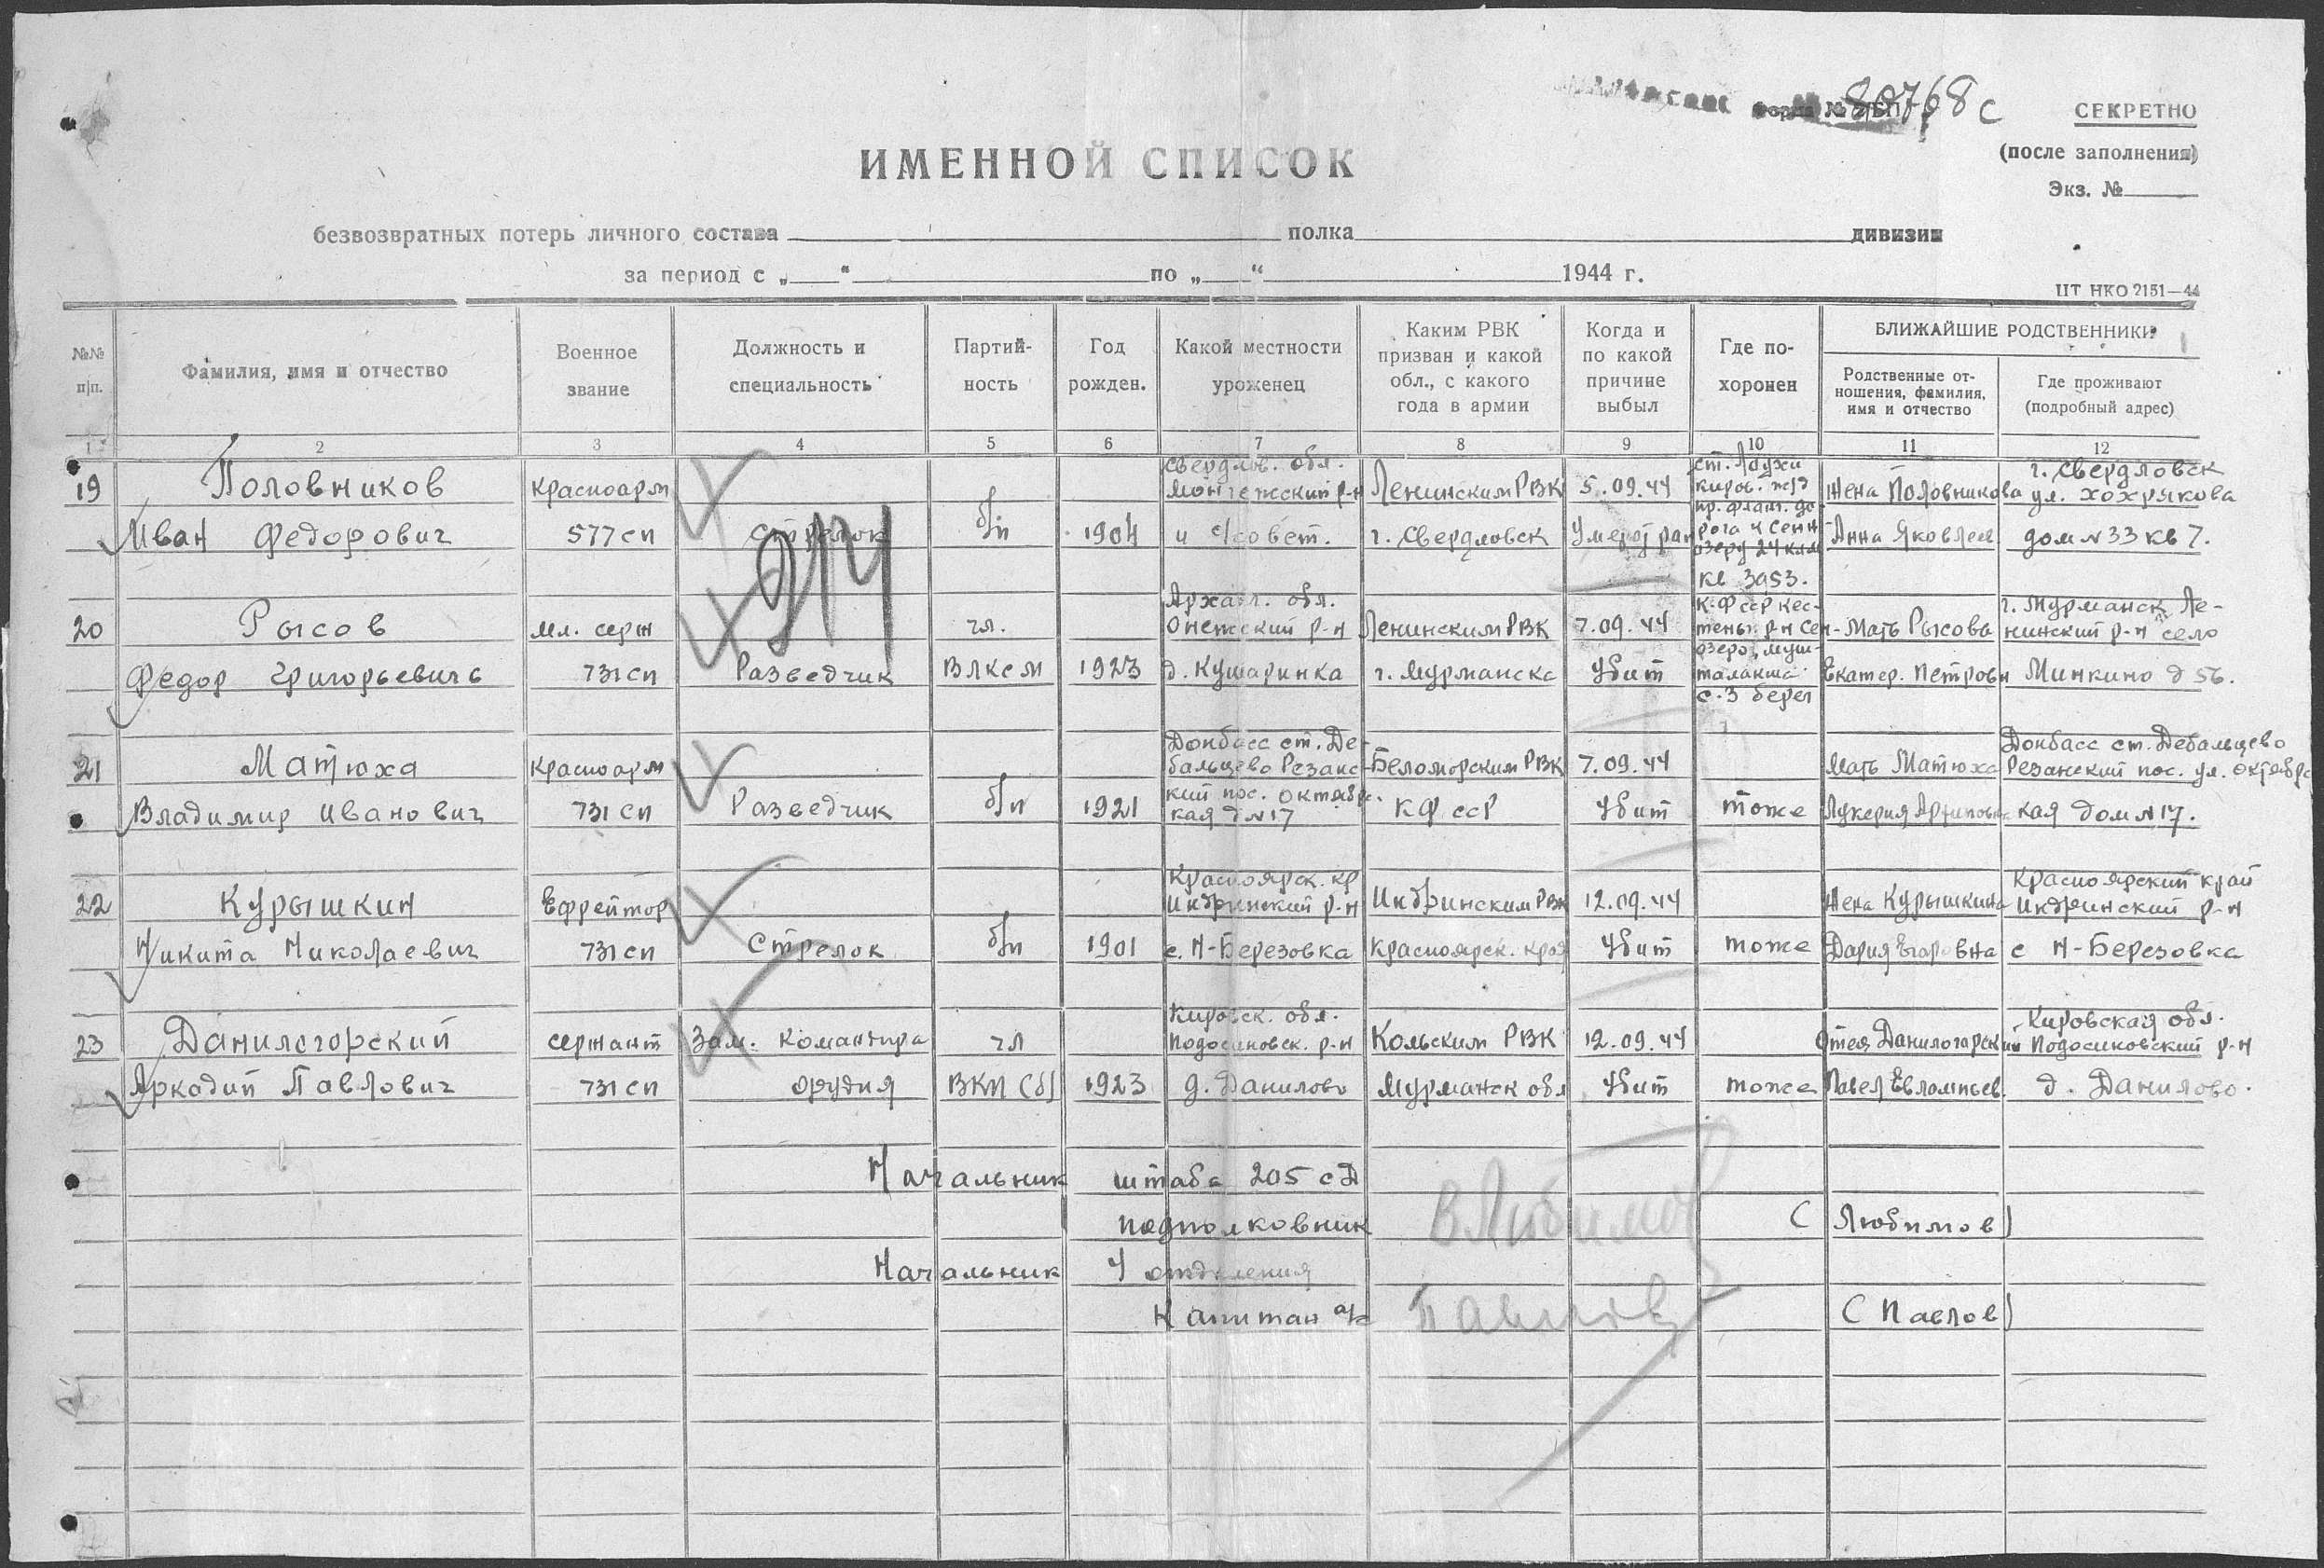 80768с
СЕКРЕТНО
(после заполнения)
Экз. №
ИМЕННОЙ СПИСОК
безвозвратных потерь личного состава полка дивизии
за период с „ “ по „ “ 1944 г.
ЦТ НКО 2151—44
№№ п/п.
Фамилия, имя и отчество
Военное звание
Должность и специальность
Партийность
Год рожден.
Какой местности уроженец
Каким РВК призван и какой обл., с какого года в армии
Когда и по какой причине выбыл
Где похоронен
БЛИЖАЙШИЕ РОДСТВЕННИКИ
Родственные отношения, фамилия, имя и отчество
Где проживают (подробный адрес)
1 2 3 4 5 6 7 8 9 10 11 12
Свердлов. обл. ст. Лоухи г. Свердловск
19 Половников Красноарм р-н Ленинским РВК 5.09.44 киров. жд Жена Половникова ул. Хохрякова
Иван Федорович 577 сп Стрелок б/п 1904 г. Свердловск Умер от ран рога к Сен Анна Яковлев дом N 33 кв 7.
озеру 24 клм
кв 3953.
214
Архан. обл. К-Фсср Кес- г. Мурманск Ле-
20 Рысов мл. серж чл. Онежский р-н Ленинским РВК 7.09.44 теньг. р-н Сен- Мать Рысова нинский р-н село
озеро, муш-
Федор Григорьевич 731 сп Разведчик ВЛКСМ 1923 д. Кушаринка г. Мурманска Убит талакша Екатер. Петровн Минкино д 56.
с-з берег
Донбасс ст. Де- Донбасс ст. Дебальцево
21 Матюха Красноарм бальцево Резанс- Беломорским РВК 7.09.44 Мать Матюха Резанский пос. ул. Октябрс
кий пос. Октябрс.
Владимир Иванович 731 сп Разведчик б/п 1921 кая д N 17 КФССР Убит тоже Лукерия Архиповн кая дом N 17.
Красноярск. кр Красноярский край
22 Курышкин Ефрейтор Индринский р-н Индринским РВК 12.09.44 Жена Курышкина Индринский р-н
Никита Николаевич 731 сп Стрелок б/п 1901 с. Н-Березовка Красноярск. края Убит тоже Дария Егоровна с Н-Березовка
Кировск. обл. Кировская обл.
23 Данилогорский сержант Зам. Командира чл Подосиновск. р-н Кольским РВК 12.09.44 Отец Данилогорский Подосиновский р-н
Аркадий Павлович 731 сп орудия ВКП(б) 1923 д. Данилово Мурманск обл Убит тоже Павел Евлампьев. д. Данилово.
Начальник штаба 205 сд
подполковник ВЛюбимов (Любимов)
Начальник 4 отделения
Капитан а/с Павлов (Павлов)